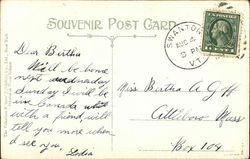 SOUVENIR POST CARD
SWANTON
AUG
3 PM
VT.
Dear Bertha
Will be home
next Wednesday
Sunday I will be
in Canada
with a friend, will
tell you more when
I see you.
Lydia
Miss Bertha A Goff
Attleboro Mass
Box 104